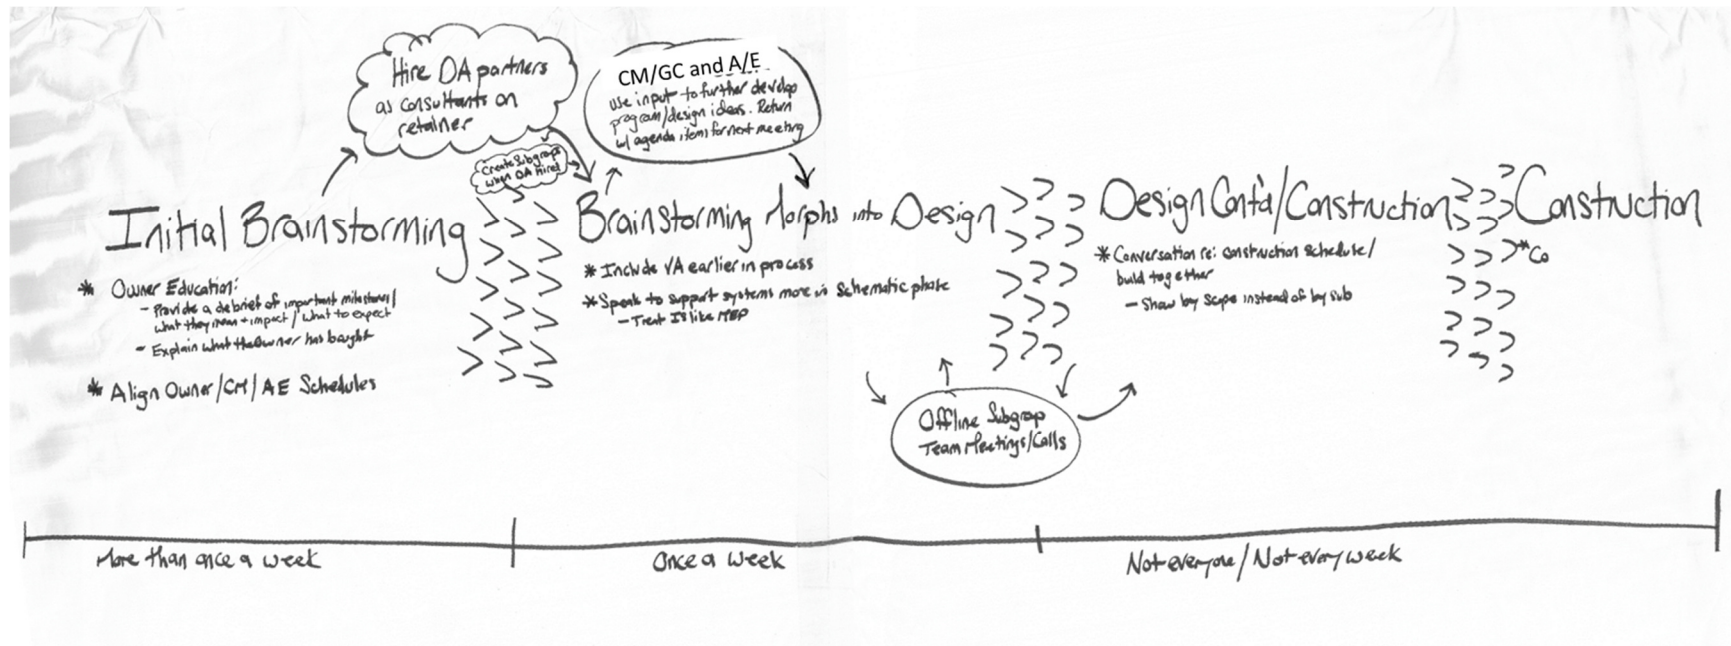 Hire DA partners
as consultants on
retainer
CM/GC and A/E
use input to further develop
program/design ideas. Return
w/ agenda items for next meeting
Create Subgroups
when DA hired
Initial Brainstorming
Brainstorming Morphs into Design
Design Cont'd/Construction
Construction
* Owner Education:
- Provide a debrief of important milestones/
what they mean + impact/what to expect
- Explain what the Owner has bought
* Align Owner/CM/AE Schedules
* Include VA earlier in process
* Speak to support systems more in Schematic phase
- Treat IS like MEP
* Conversation re: construction schedule/
build together
- Show by scope instead of by sub
* Co
Offline Subgrop
Team Meetings/Calls
More than once a week
Once a week
Not everyone/Not every week